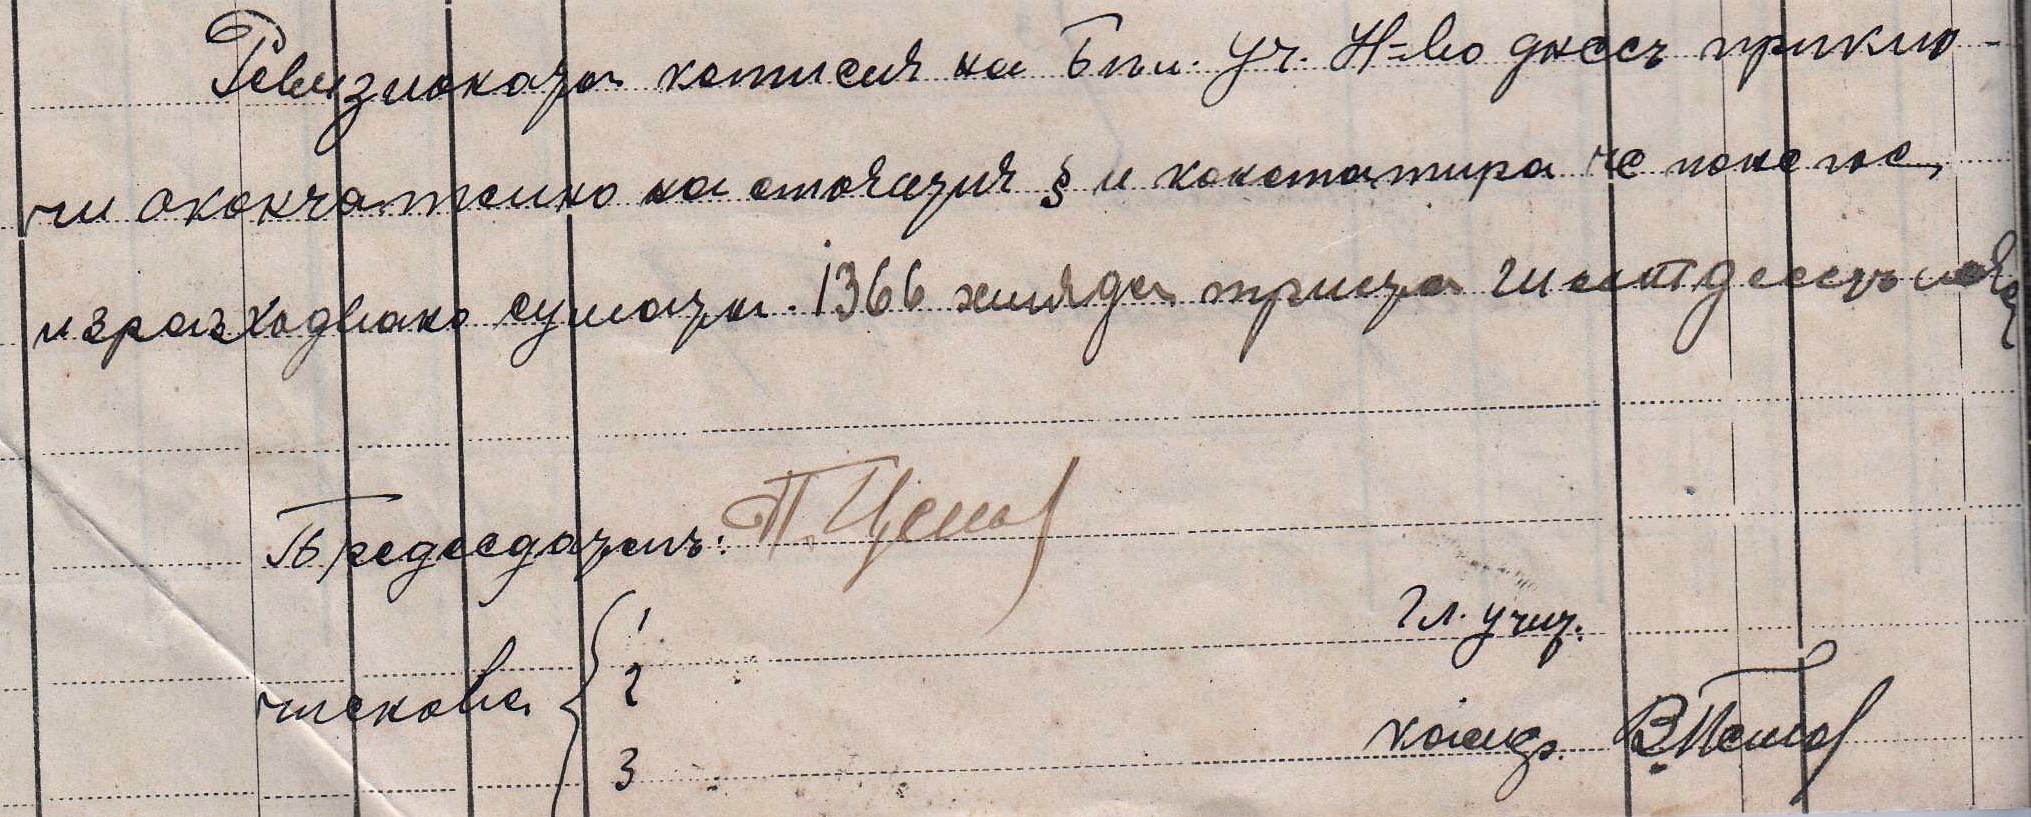 Ревизионата комисия на Бпл. Уч. Н-во днесъ приклю-
чи окончателно настоящия § и констатира че понего се
изразходвано сумата. 1366 хиляда триста шестдесетъ
Председателъ: П. Ценов
членове { 1
2
3
Гл. учит.
касиер. В. Пенов